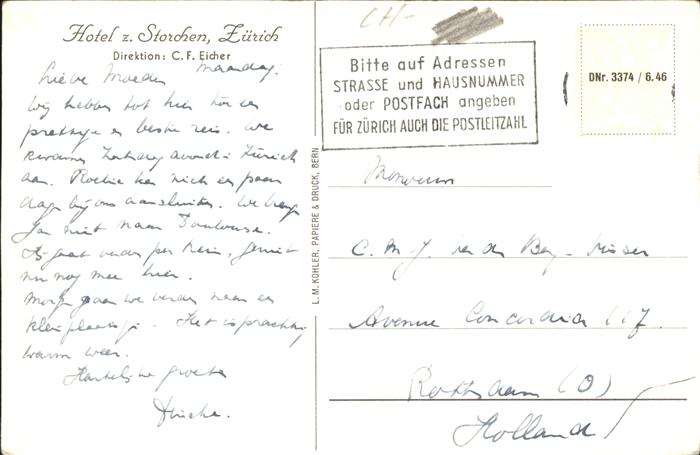 Hotel z. Storchen, Zürich
Direktion: C. F. Eicher
Lieve Moeder Maandag.
Wij hebben tot hier toe een
prettige en beste reis. We
kwamen Zaterdag avond in Zürich
aan. zich een paar
dagen bij ons aansluiten. We
niet naar Toulouse.
gaat verder per trein, geniet
nu nog mee hier.
Morgen gaan we verder naar een
klein plaatsje. Het is prachtig
warm weer.
Hartelijke groeten
L. M. KOHLER, PAPIERE & DRUCK, BERN
CH-
Bitte auf Adressen
STRASSE und HAUSNUMMER
oder POSTFACH angeben
FÜR ZÜRICH AUCH DIE POSTLEITZAHL
DNr. 3374 / 6.46
Mevrouw
C. M. J. v. d. Berg - Visser
Avenue Concordia 117.
Rotterdam (O)
Holland